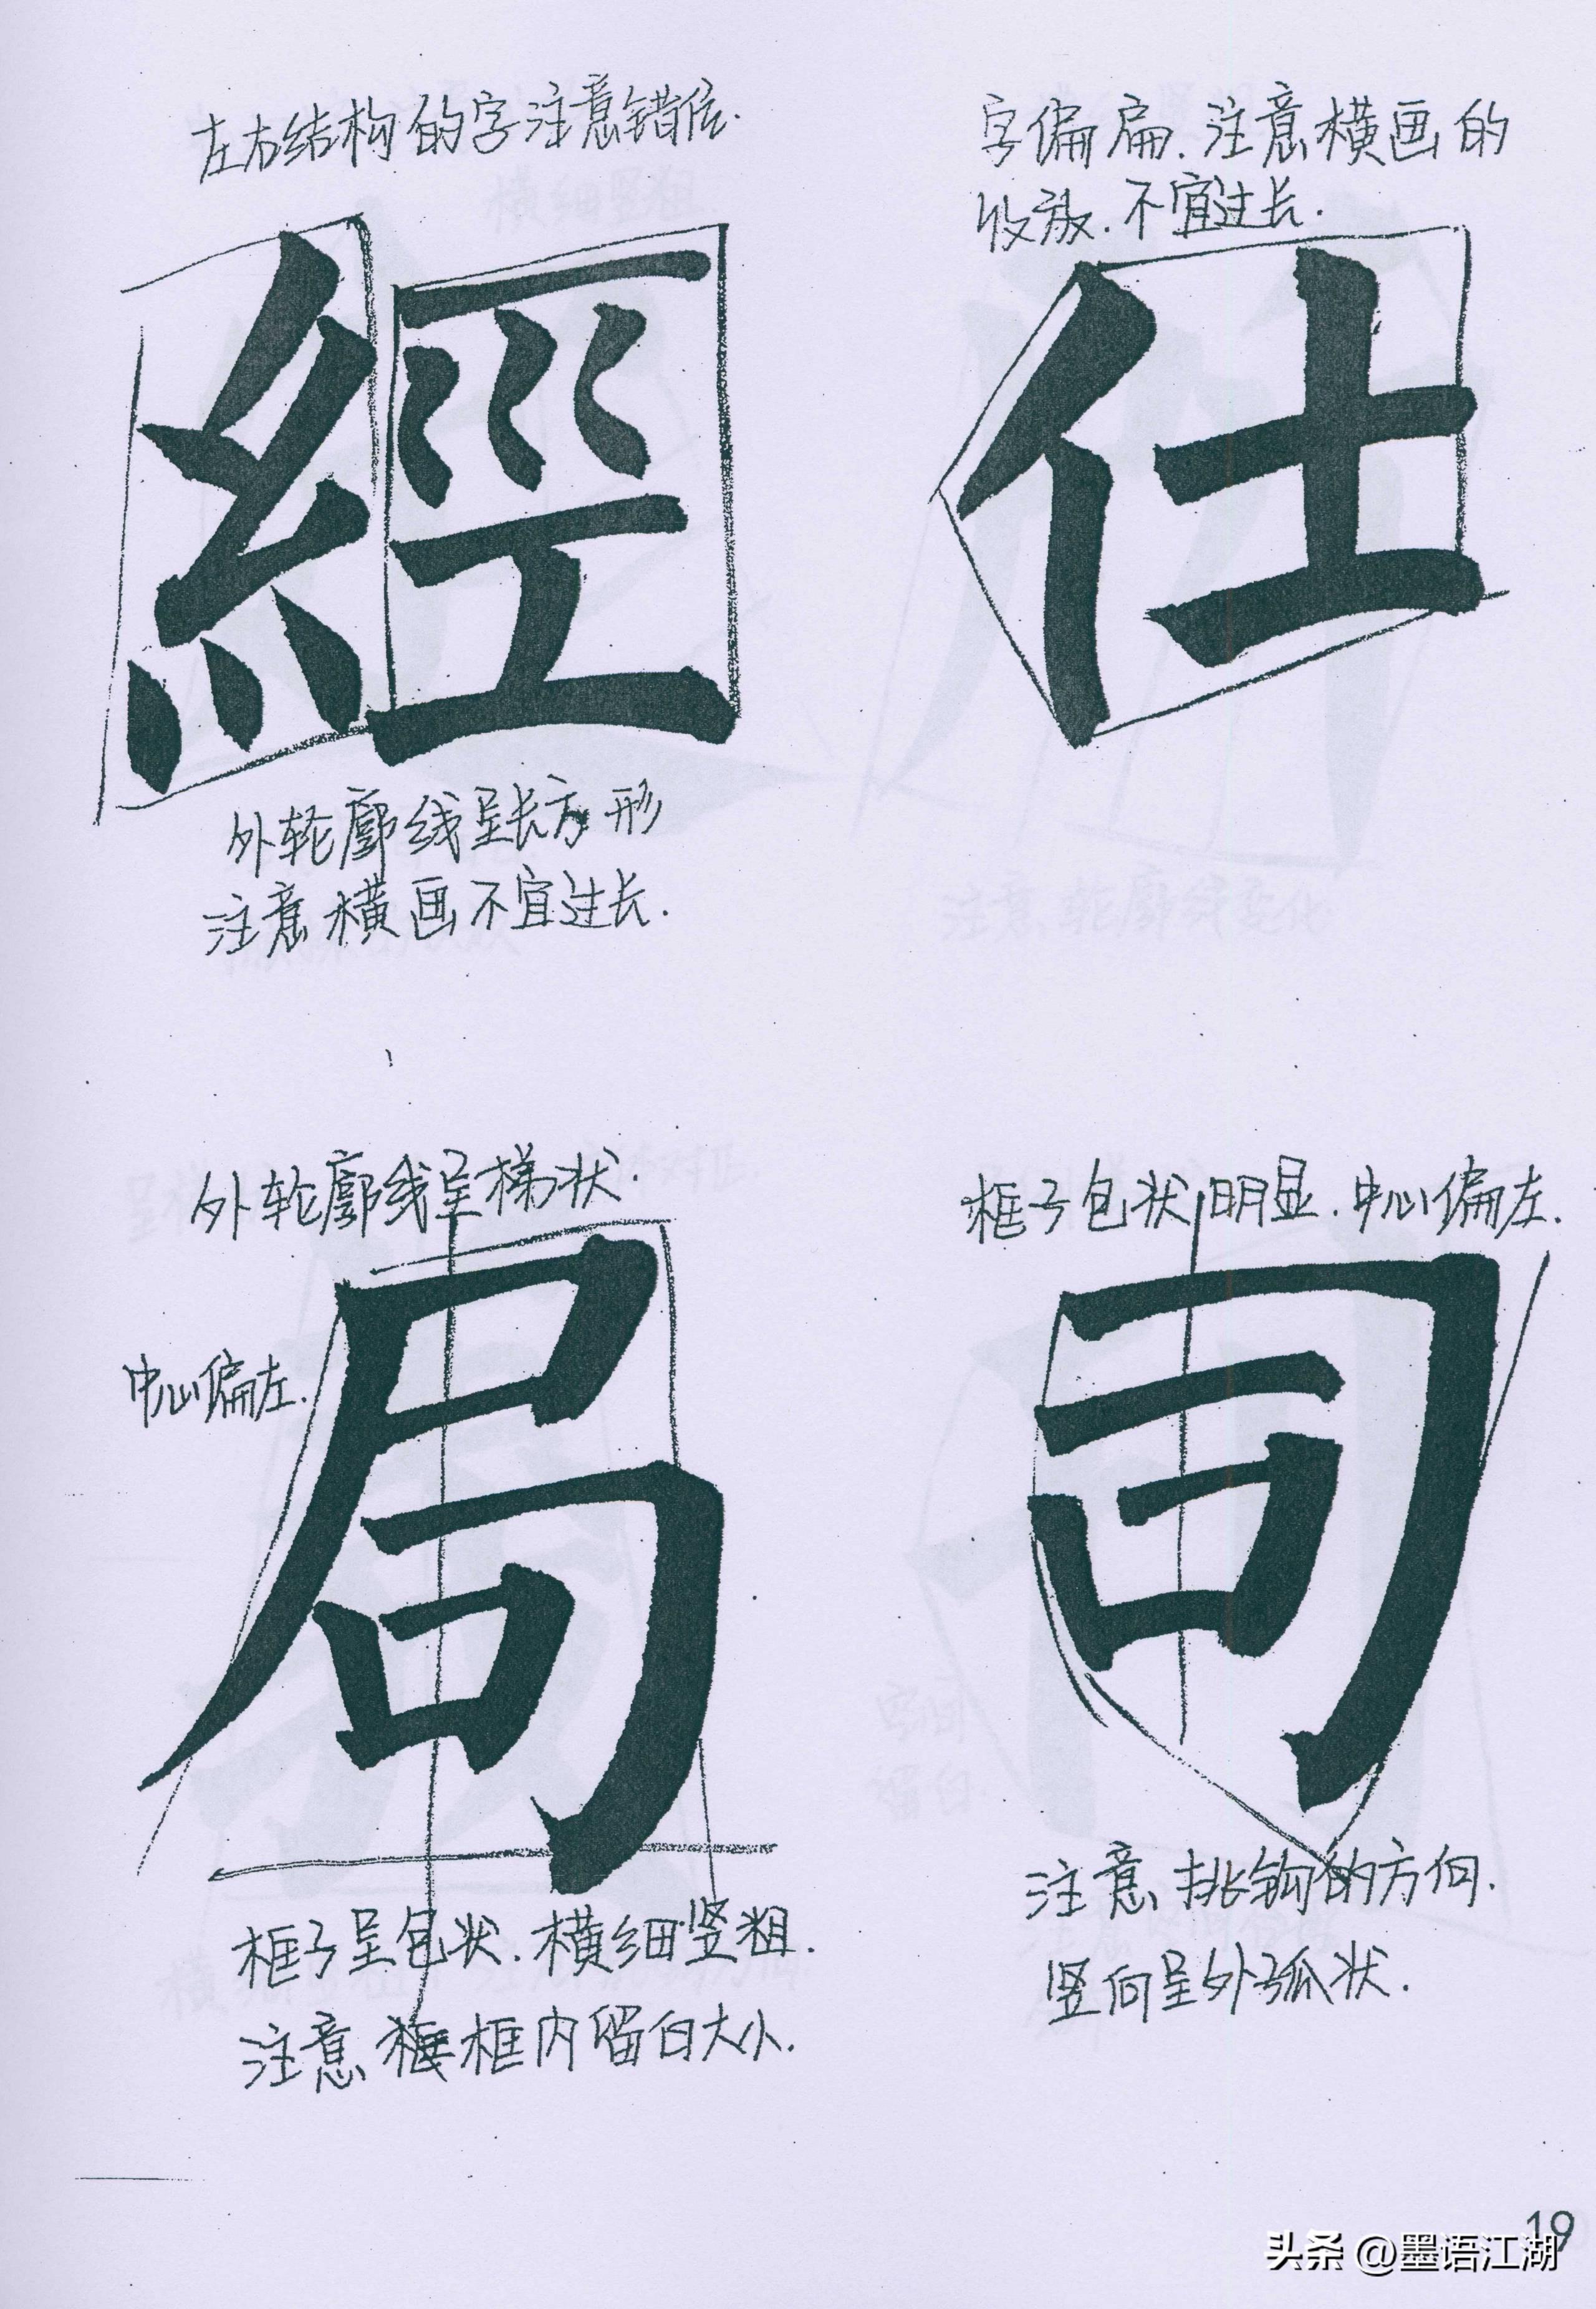 左右结构的字注意错位.
字偏扁.注意横画的
收放.不宜过长.
經
仕
外轮廓线呈长方形
注意横画不宜过长.
外轮廓线呈梯状.
框子包状明显.中心偏左.
中心偏左.
局
司
框子呈包状.横细竖粗.
注意框内留白大小.
注意挑钩的方向.
竖向呈外弧状.
19
头条 @墨语江湖